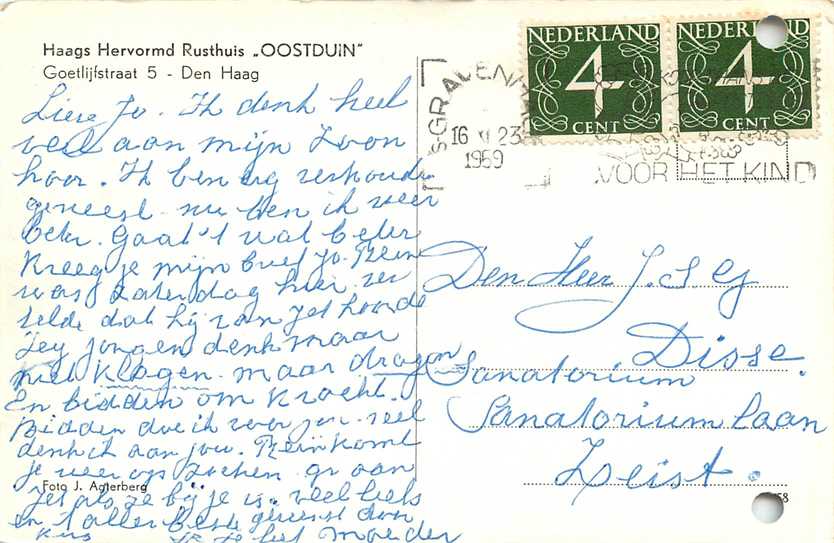 Haags Hervormd Rusthuis „OOSTDUIN"
Goetlijfstraat 5 - Den Haag
Lieve Jo. Ik denk heel
veel aan mijn zoon
hoor. Ik ben erg verkouden
geweest nu ben ik weer
beter. Gaat 't wat beter
Kreeg je mijn brief Jo. Rein
was Zaterdag hier ver
telde dat hij van Jet hoorde
Zeg jongen denk maar
niet klagen maar dragen
En bidden om kracht.
Bidden doe ik voor jou veel
denk ik aan jou. Rein komt
je weer op zoeken gr aan
Jet als ze bij je is. veel liefs
en 't aller beste gewenst door
kus je liet moeder
Foto J. Agterberg
NEDERLAND
4
CENT
NEDERLAND
4
CENT
'SGRAVENHAGE
16 23
1959
VOOR HET KIND
Den Heer J. S G
Disse.
Sanatorium
Sanatorium laan
Zeist.
58